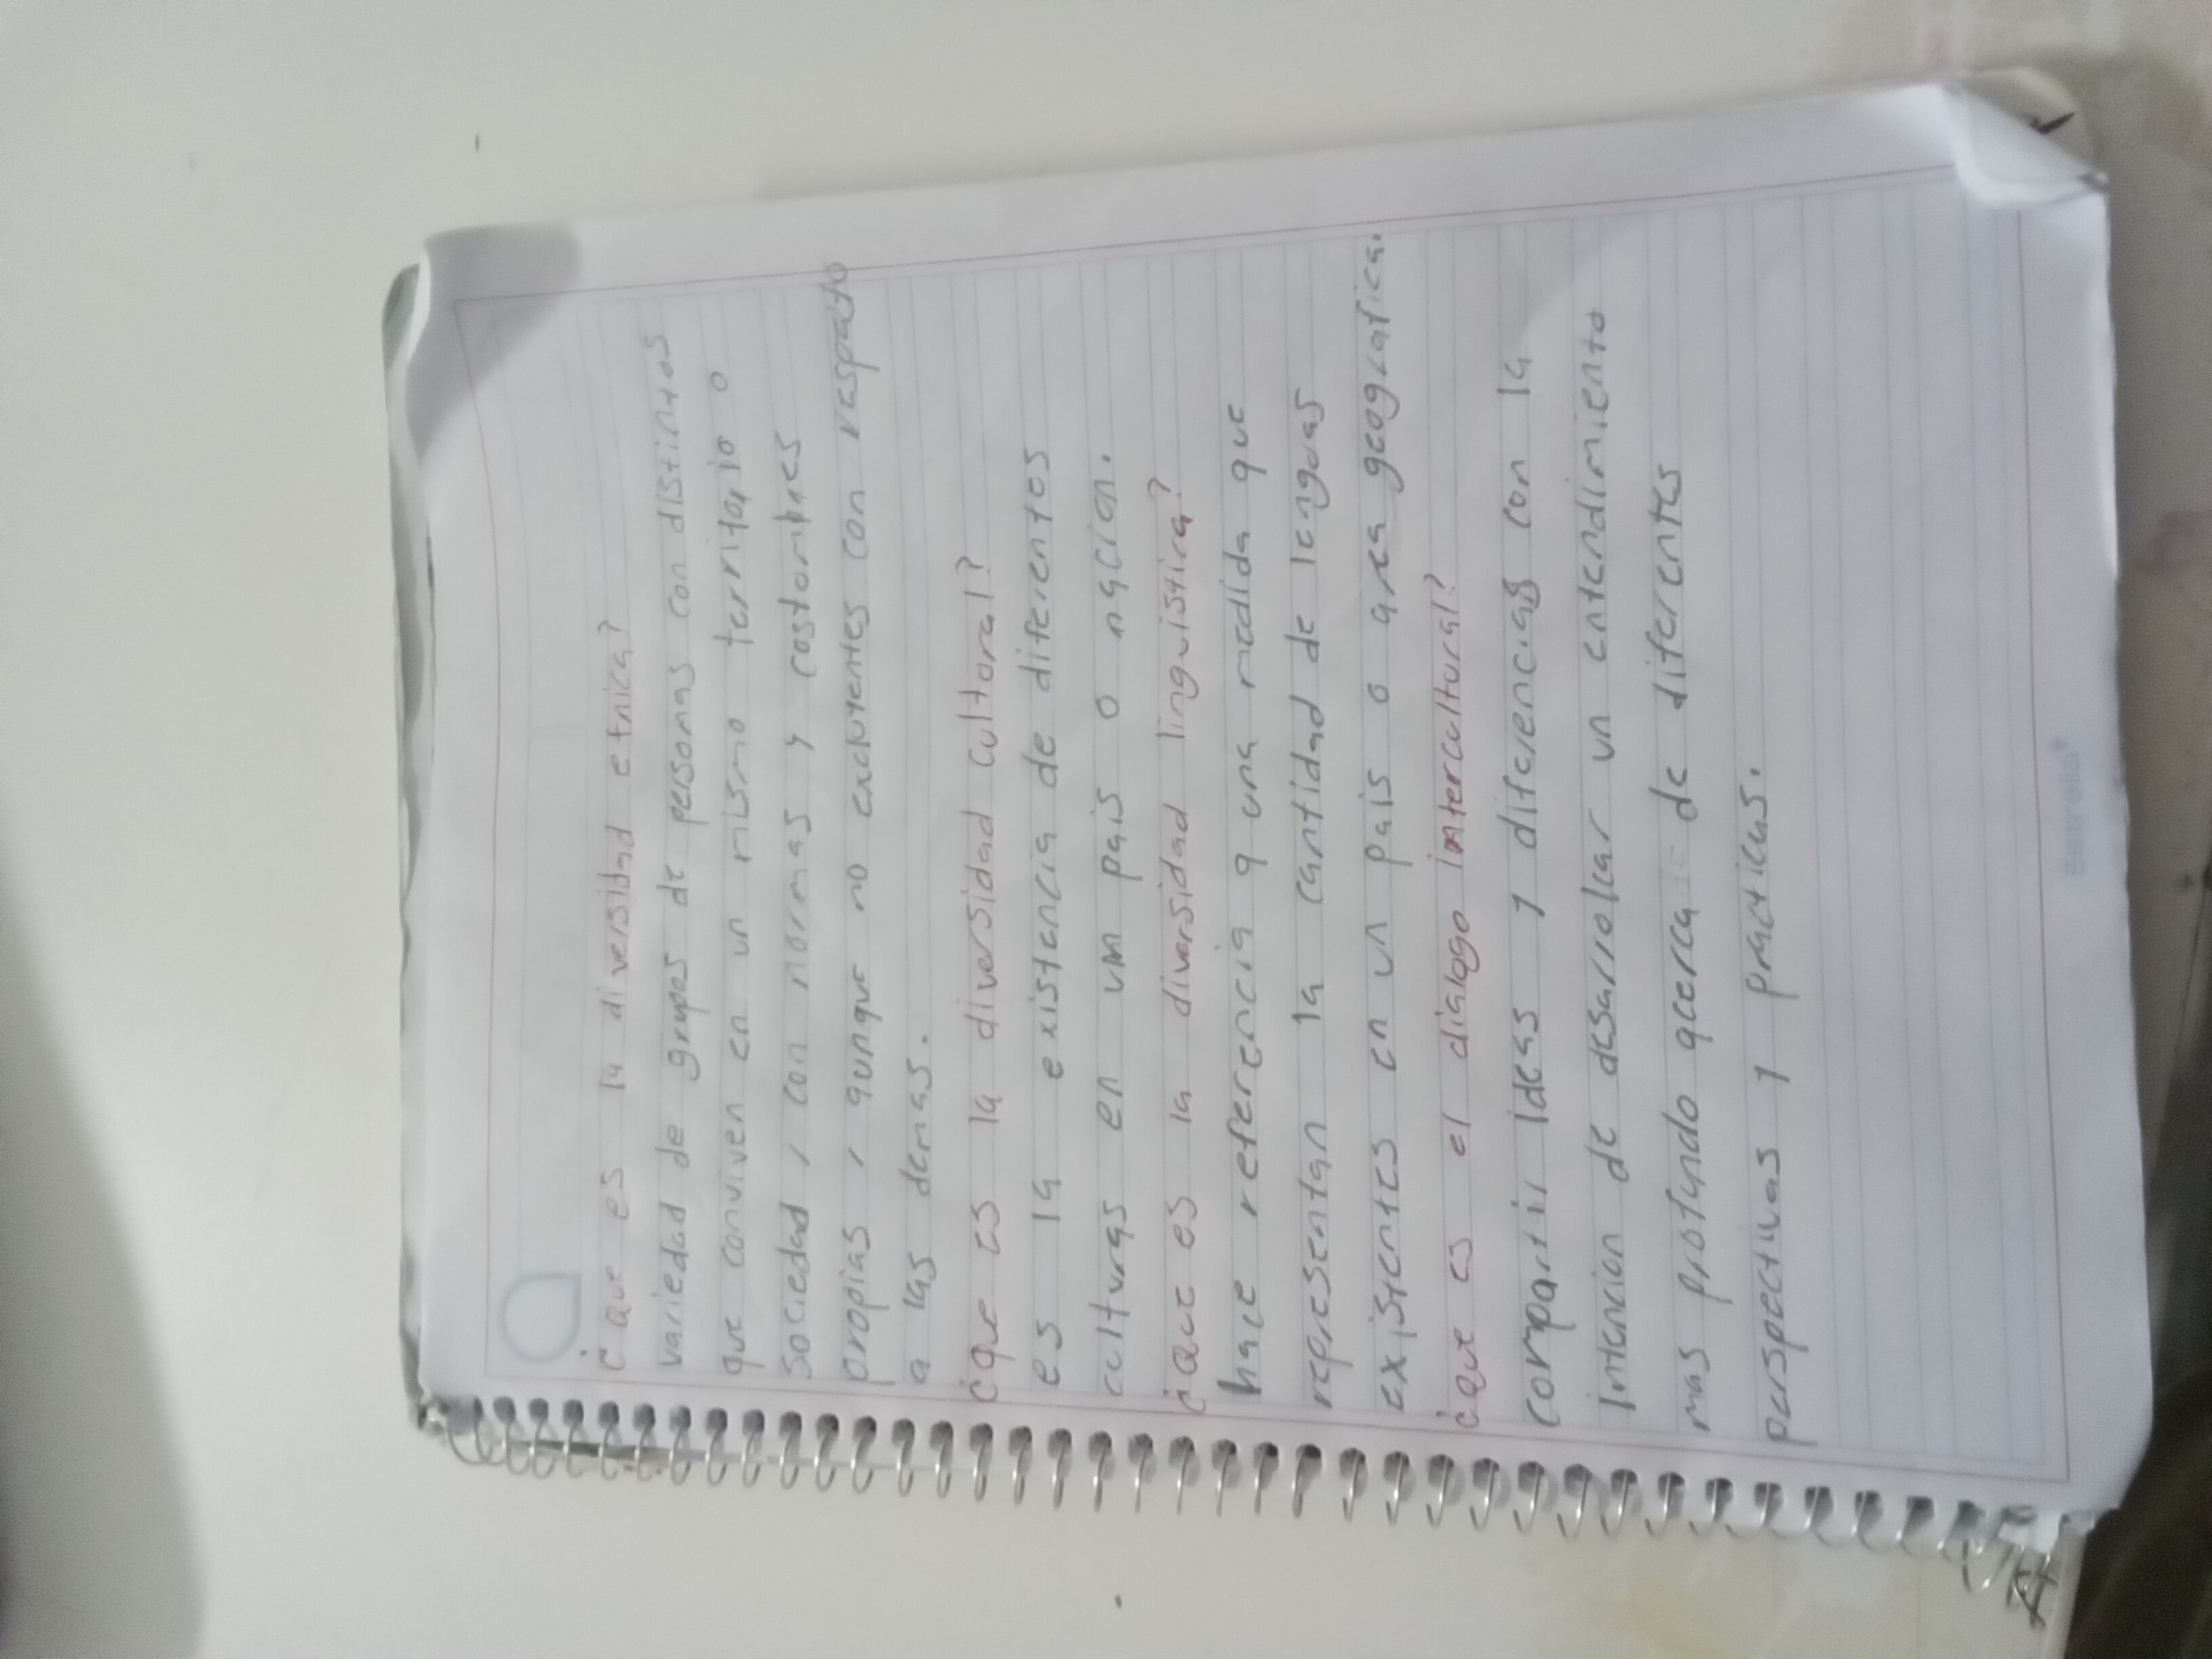 ¿que es la diversidad etnica?
variedad de grupos de personas con distintos
que conviven en un mismo territorio o
sociedad, con normas y costombres
propias, aunque no excluyentes con respeto
a las demas.
¿que es la diversidad cultoral?
es la existencia de diferentes
culturas en un pais o nacion.
¿que es la diversidad linguistica?
hace referencia a una medida que
representan la cantidad de lenguas
existentes en un pais o area geografica.
¿que es el dialogo intercultural?
compartir ideas y diferencias con la
intencion de desarrollar un entendimiento
mas profundo acerca de diferentes
perspectivas y practicas.
Estrella